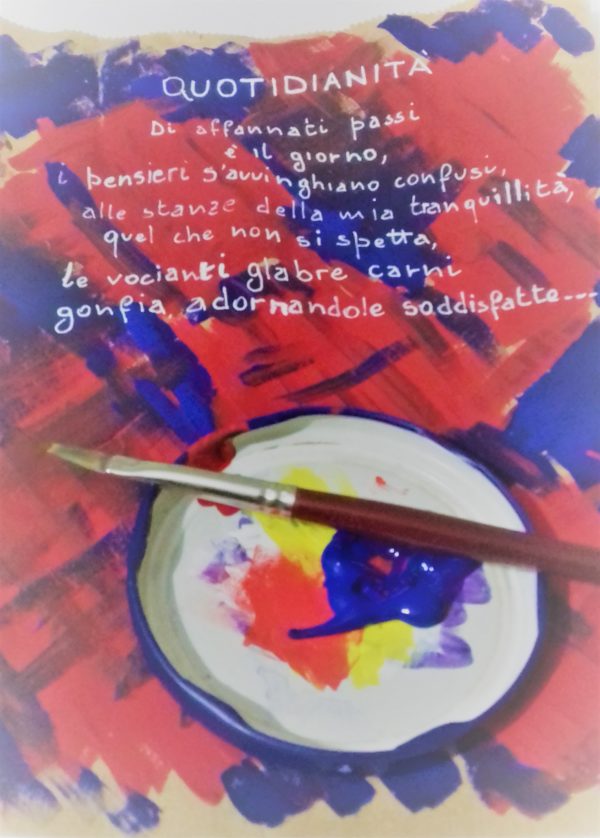 QUOTIDIANITÀ
Di affannati passi
è il giorno,
i pensieri s'avvinghiano confusi,
alle stanze della mia tranquillità,
quel che non si spetta,
le vocianti glabre carni
gonfia, adornandole soddisfatte---